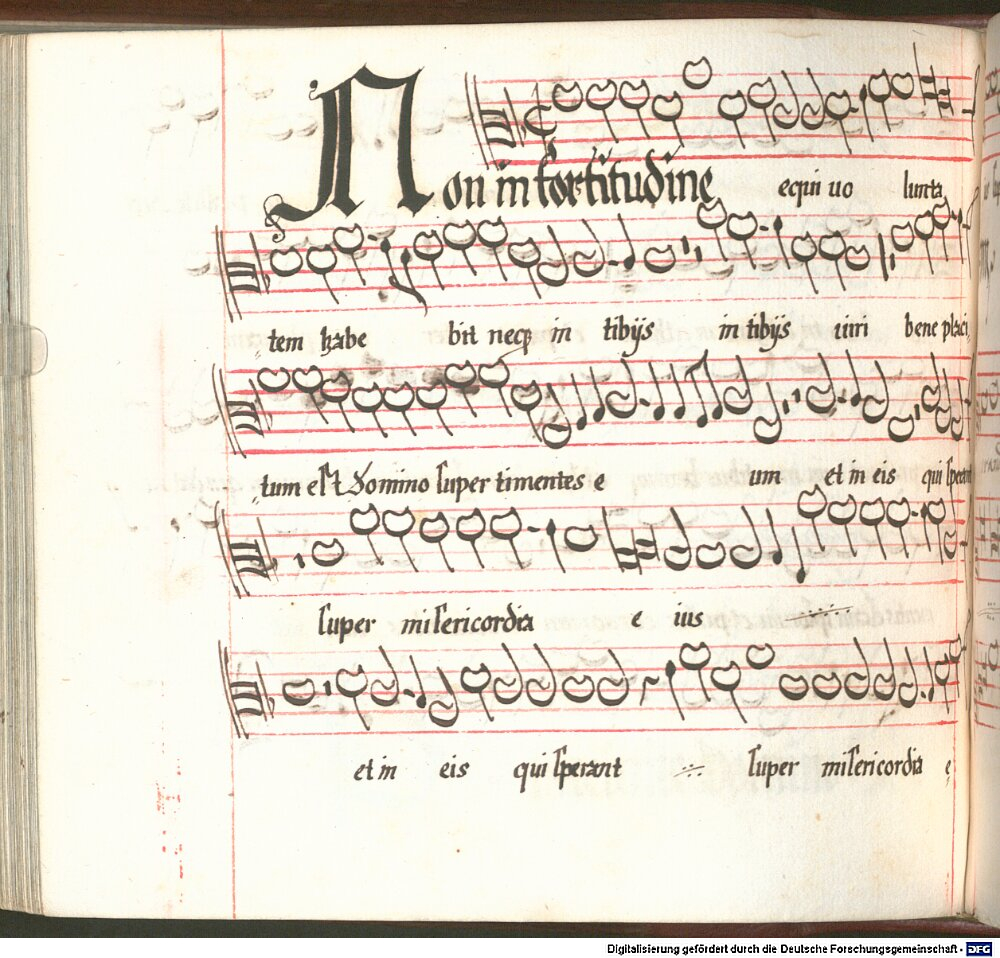 Non in fortitudine equi uo lunta
tem habe bit neqꝫ in tibijs in tibijs uiri bene placi
tum est Domino super timentes e um et in eis qui sperant
super misericordia e ius
et in eis qui sperant super misericordia e
Digitalisierung gefördert durch die Deutsche Forschungsgemeinschaft - DFG